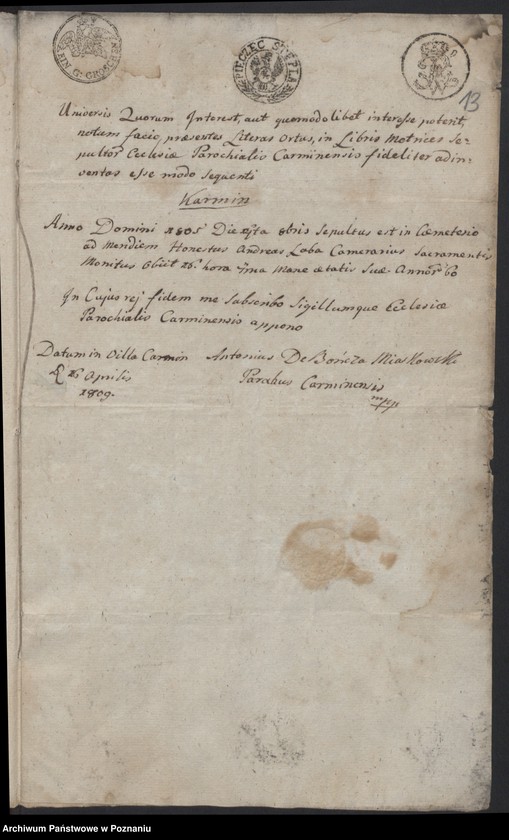 PIECZEC STĘPLA
13
Universis Quorum Interest, aut quomodolibet interesse poterit
notum facio, præsertes Literas Ortus, in Libris Motrices Se-
pultor Ecclesiæ Parochialis Carminensis fideliter adin-
ventas esse modo sequenti
Karmin
Anno Domini 1805 Die 8bris Sepultus est in Cœmeterio
ad Meridiem Honestus Andreas Laba Camerarius Sacramentis
Monitus Obiit hora Mane ætatis Suæ Annor 60
In Cujus rej fidem me Subscribo Sigillumque Ecclesiæ
Parochialis Carminensis appeno
Datum in Villa Carmin Antonius De Bończa Miaskowski
Aprilis Parochus Carminensis
1809. mpp
Archiwum Państwowe w Poznaniu